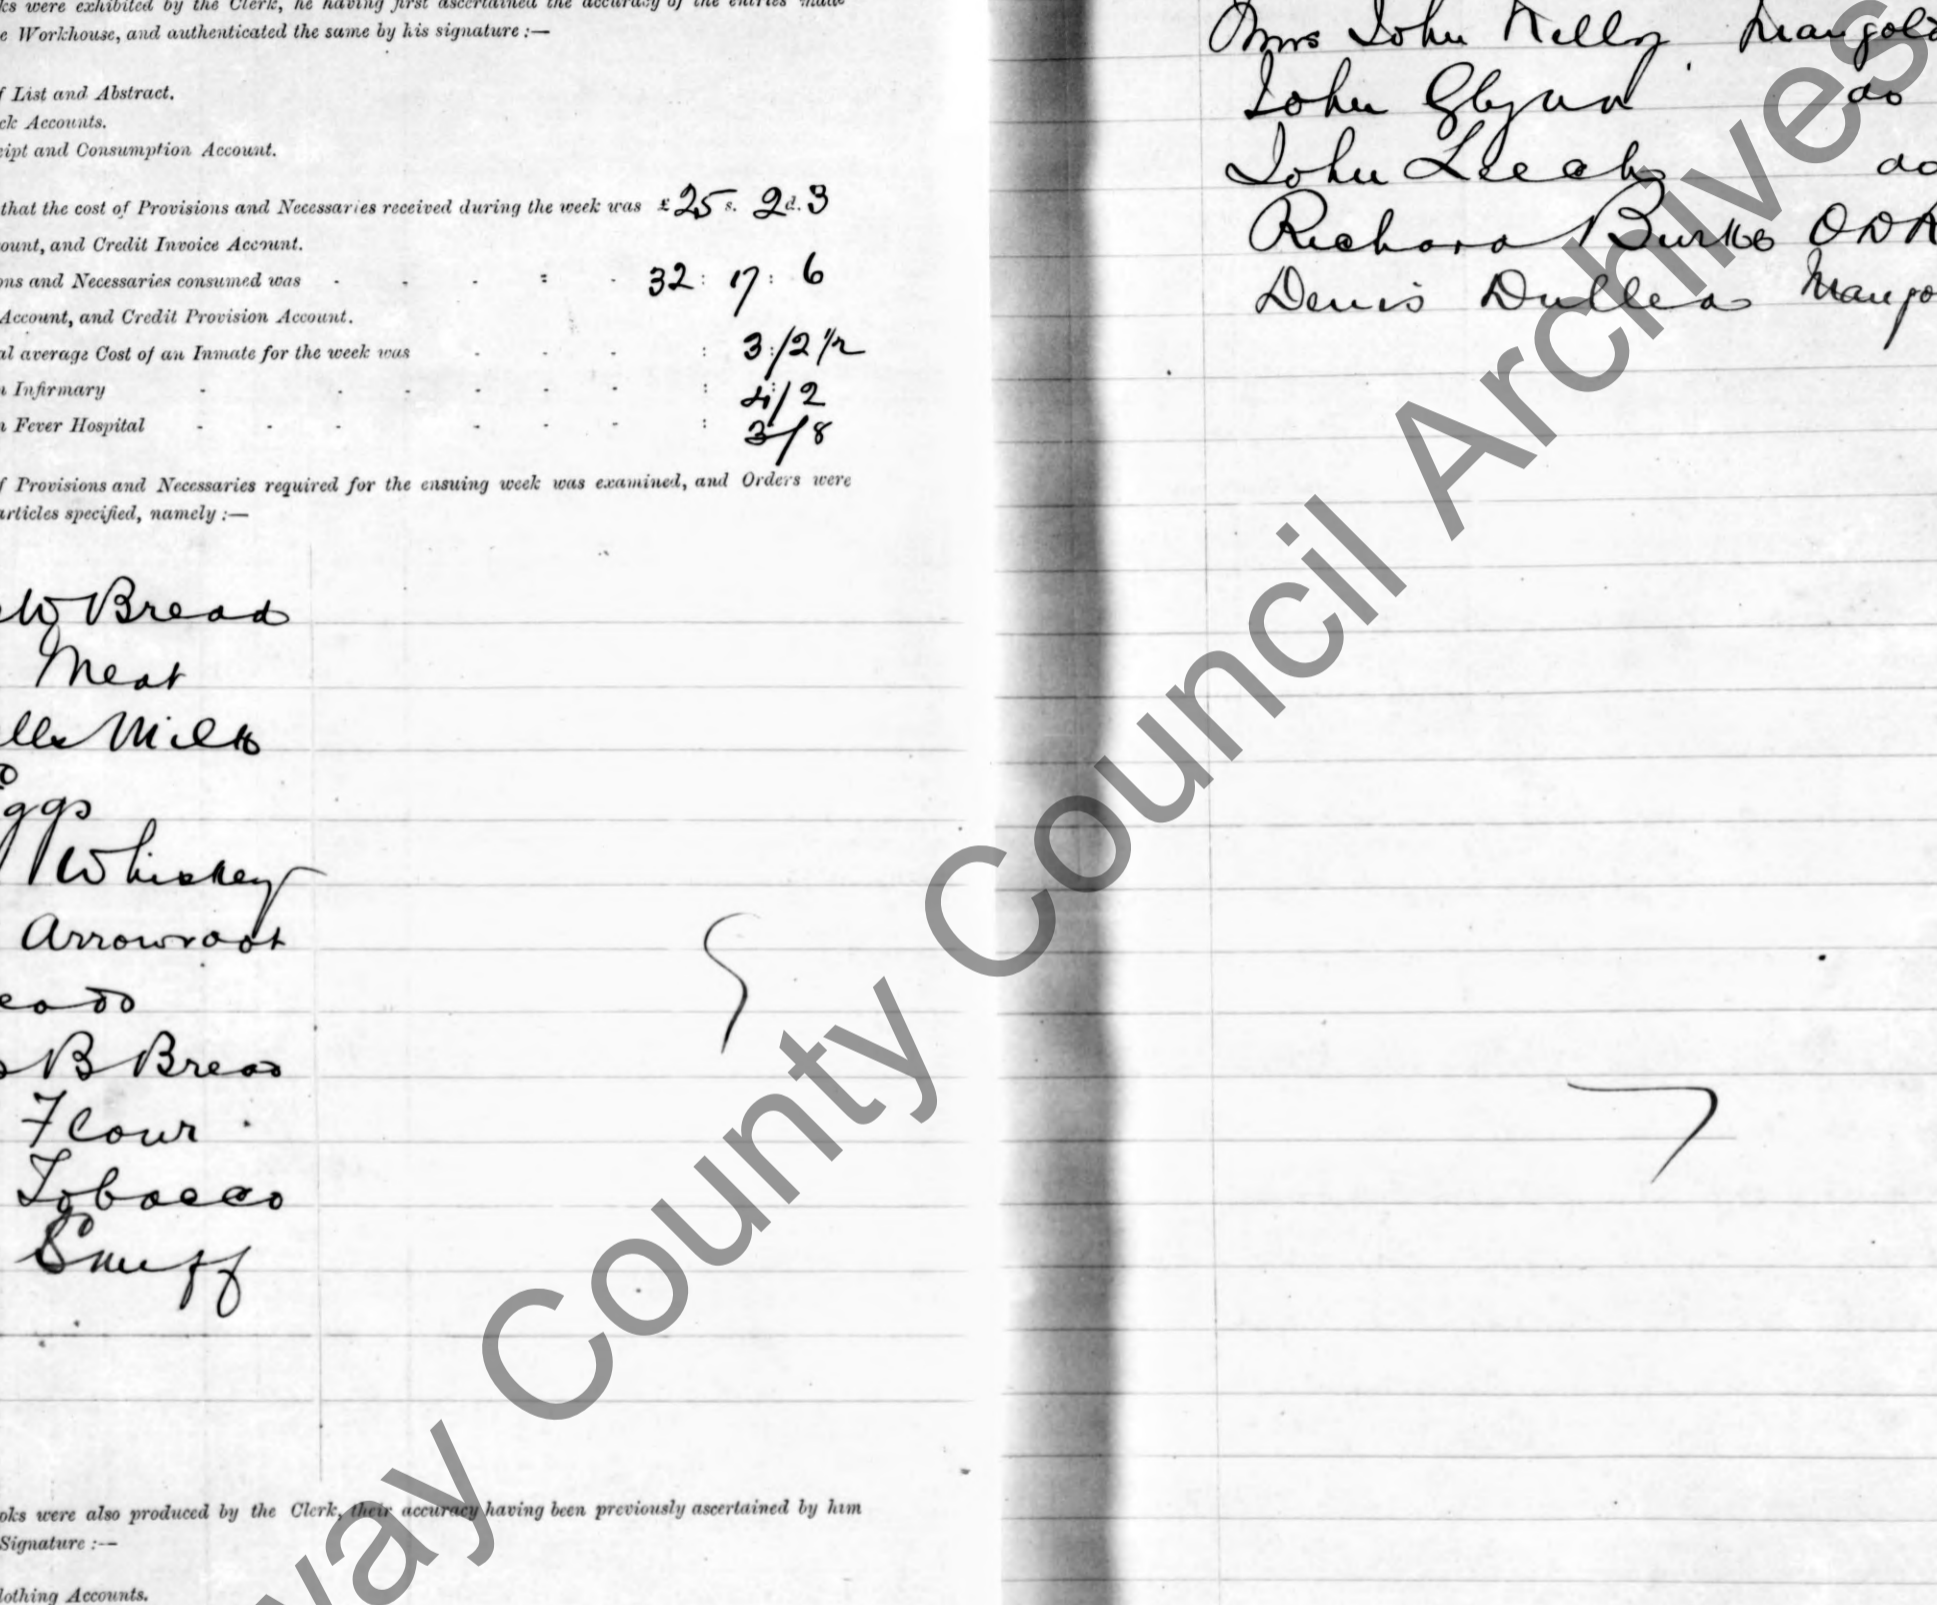 ks were exhibited by the Clerk, he having first ascertained the accuracy of the entries made
e Workhouse, and authenticated the same by his signature :—
f List and Abstract.
ck Accounts.
eipt and Consumption Account.
that the cost of Provisions and Necessaries received during the week was £25 s. 2 d. 3
ount, and Credit Invoice Account.
ons and Necessaries consumed was 32 : 17 : 6
Account, and Credit Provision Account.
al average Cost of an Inmate for the week was 3/2 1/2
n Infirmary 4/2
n Fever Hospital 3/8
f Provisions and Necessaries required for the ensuing week was examined, and Orders were
articles specified, namely :—
W Bread
Meat
Milk
ggs
Whiskey
Arrowroot
B Bread
Flour
Tobacco
Snuff
oks were also produced by the Clerk, their accuracy having been previously ascertained by him
Signature :—
lothing Accounts.
Mrs John Kelly Mangold
John Glynn do
John Leech do
Richard Burke O D R
Denis Dullea Mango
way County Council Archives